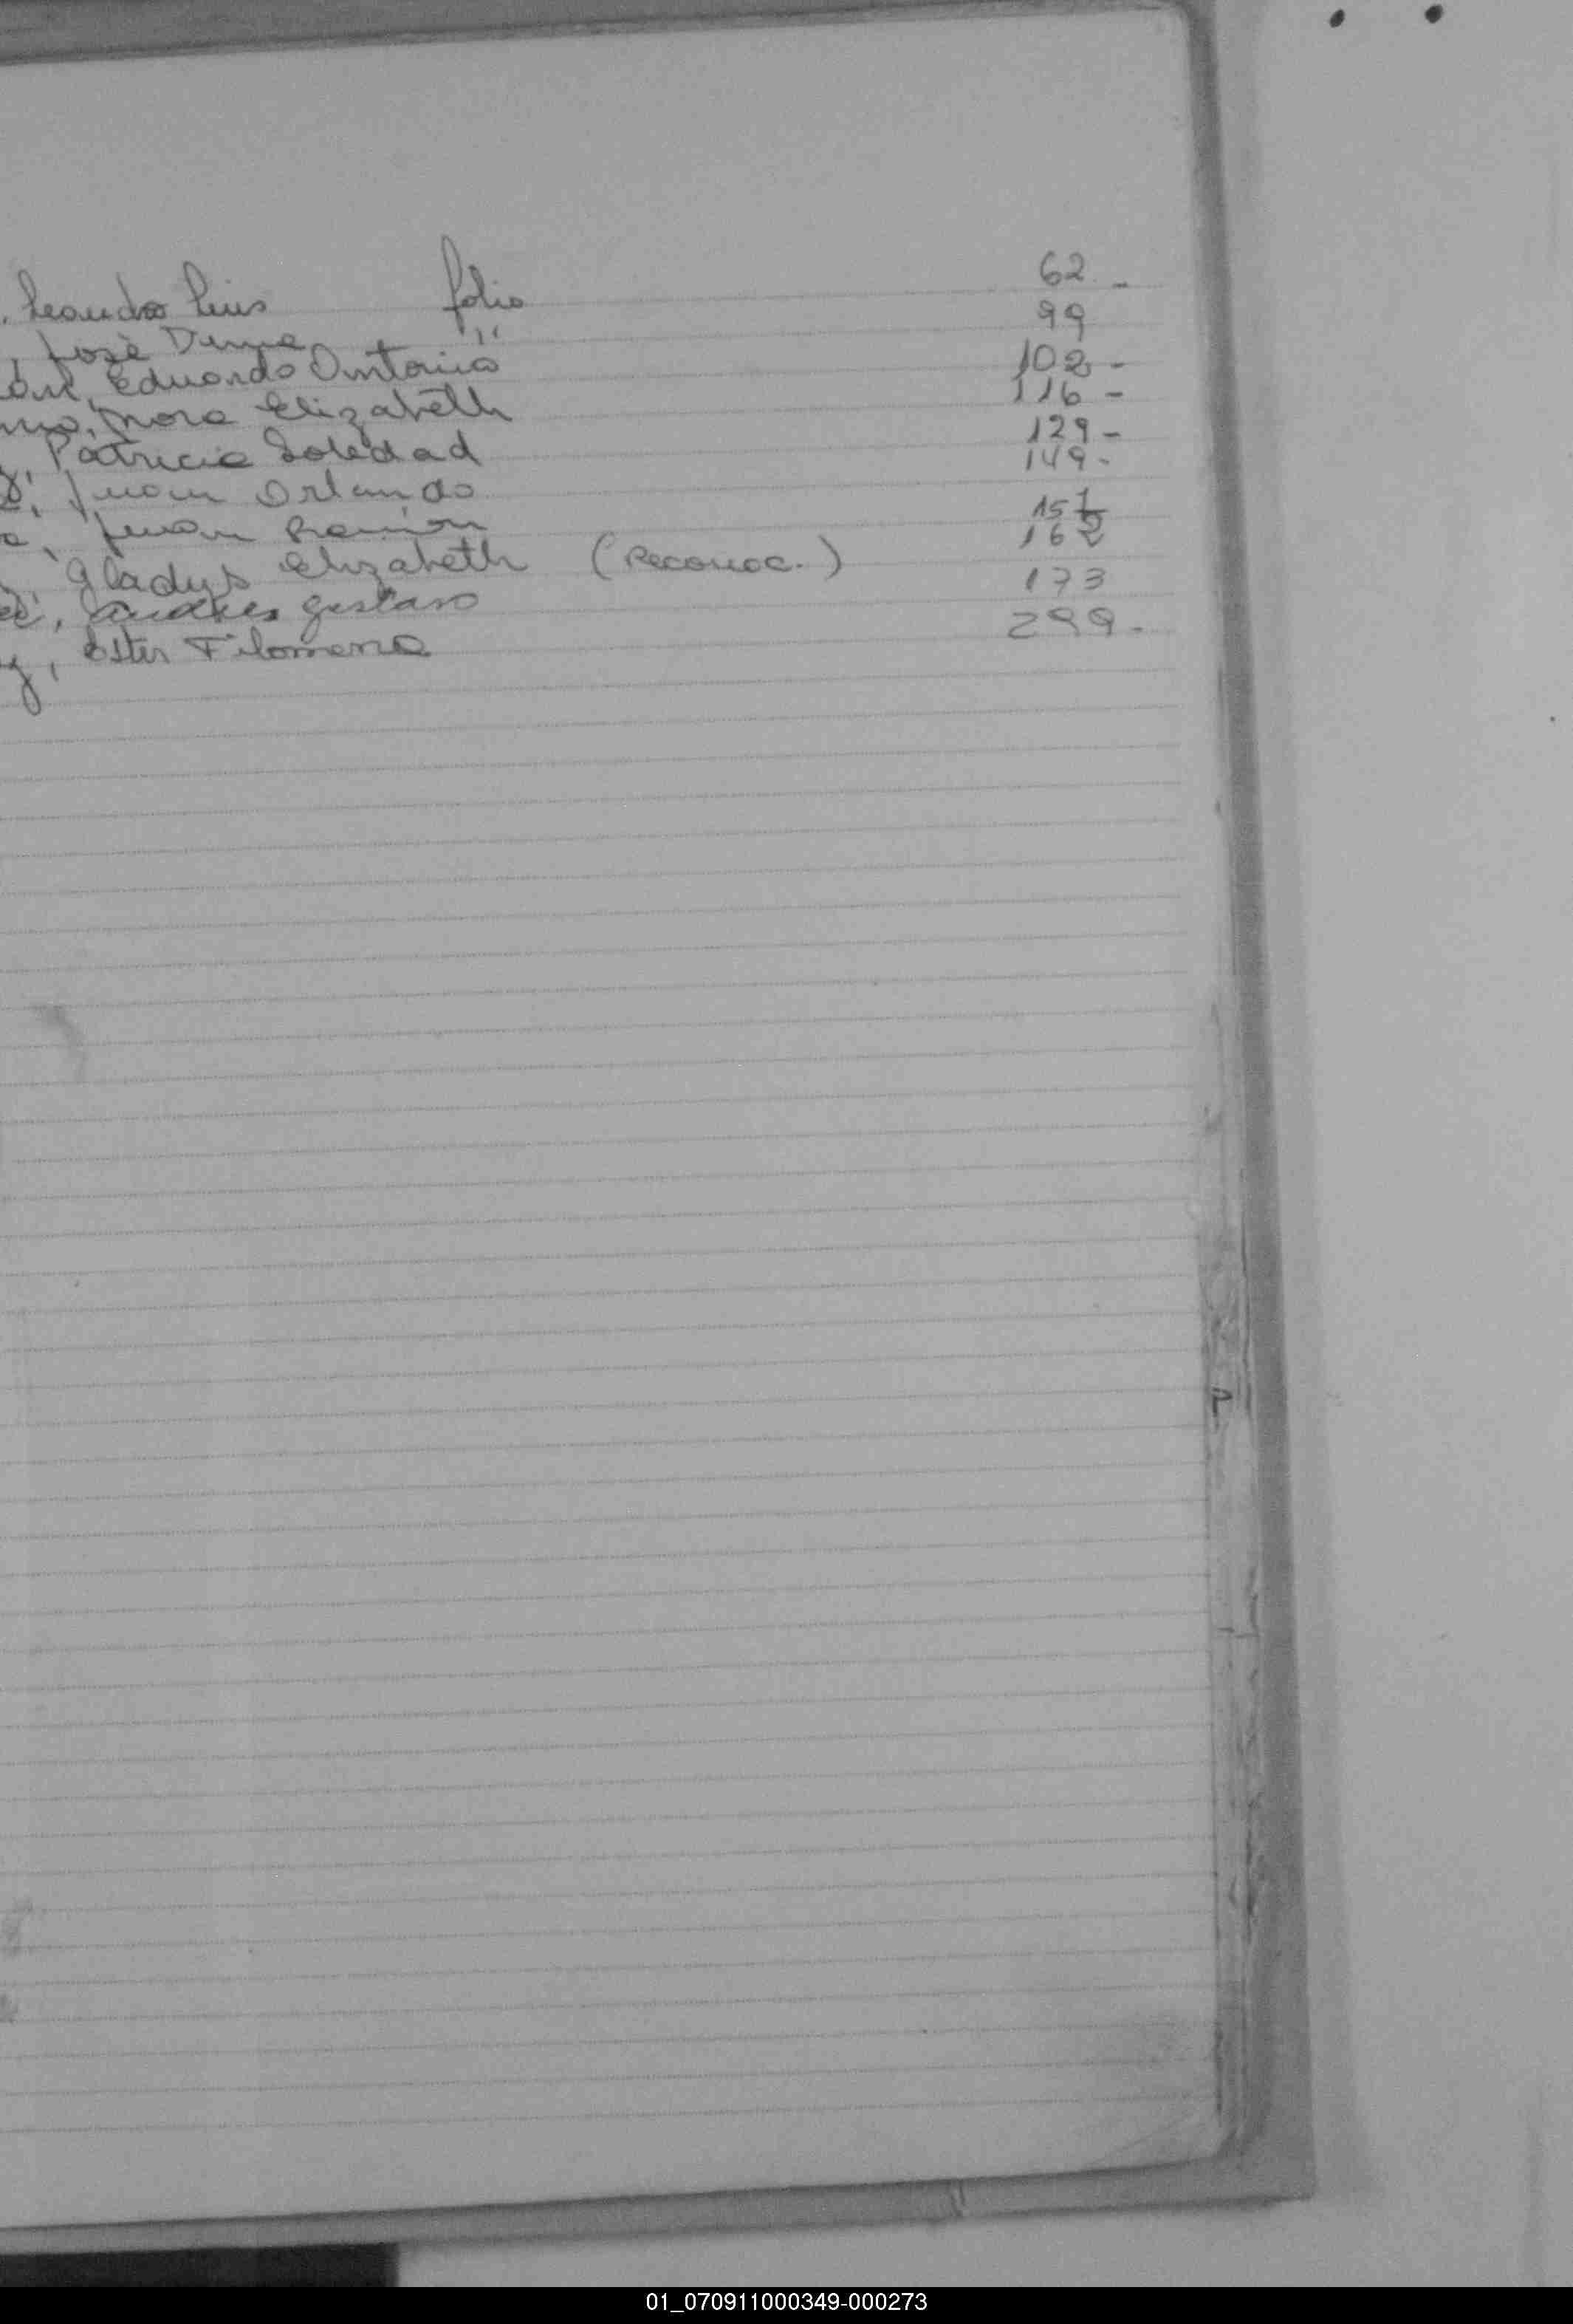 . Leandro Luis folio 62 -
, José 99
Eduardo Antonio 102 -
, Nora Elizabeth 116 -
, Patricia Soledad 129 -
, Juan Orlando 149 -
, Juan Ramón 151
, Gladys Elizabeth (Reconoc.) 162
, Andres Gustavo 173
y, Ester Filomena 299 -
P
01_070911000349-000273